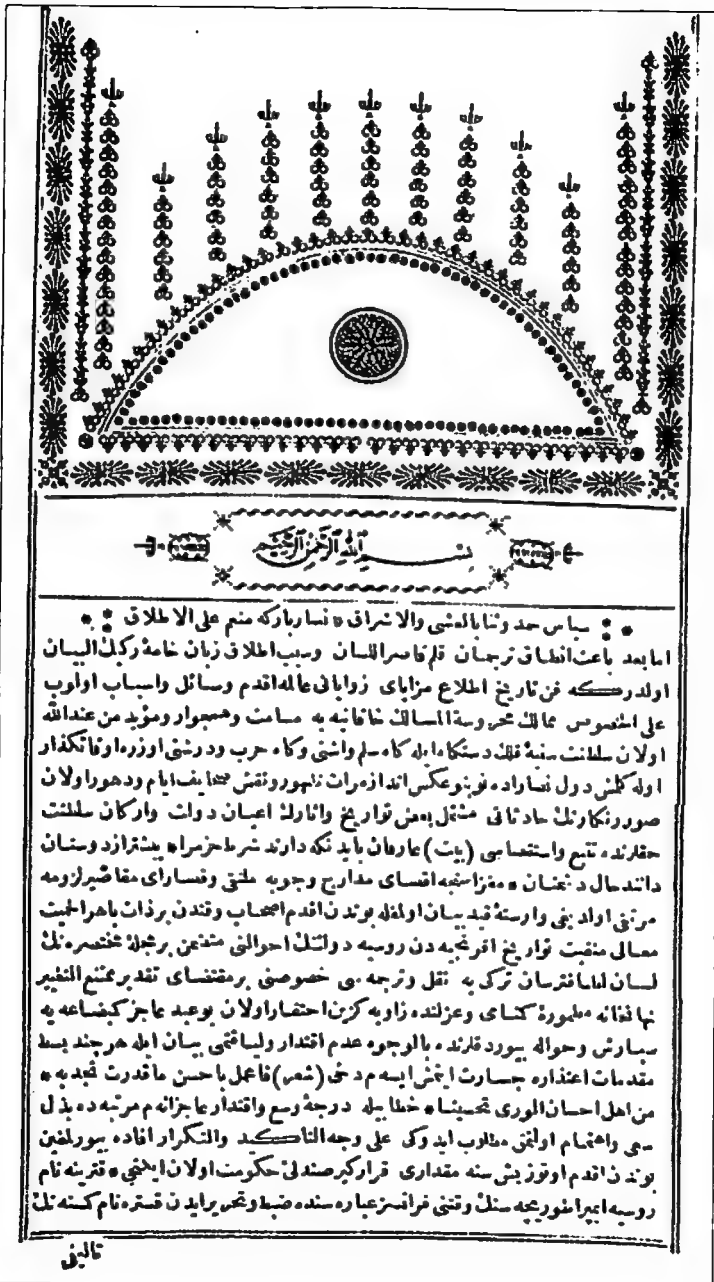 بسم الله الرحمن الرحيم
سپاس حمد وثنا بالعشى والاشراق * نسار بارکه منعم على الاطلاق
اما بعد باعث انطاق ترجمان قلم قاصر اللسان وسبب اطلاق زبان خامۀ رکیك البیان
اولدرکه فن تاریخ اطلاع مزایای زوایای عالمه اقدم وسائل واسباب اولوب
على الخصوص ممالك محروسة المسالك خاقانیه یه مسامت وهمجوار ومؤید من عندالله
اولان سلطنت سنیۀ فلك دستکاه ایله کاه سلم واشتی وکاه حرب ودرشتی اوزره اوقاتکذار
اوله کلمش دول نصاراده نوبنو عکس انداز مرات ظهور ونقش صحایف ایام ودهور اولان
صور رنکارنك حادثاتی مشتمل بعض تواریخ واثارك اعیان دولت وارکان سلطنت
حقلرنده تتبع واستقصاسی (بیت) عارفان باید نکه دارند شرط حزم را * بیشتر از دوستان
دانند حال دشمنان * مغزاسنجه اقصای مدارج وجوبه ملتقی وقصارای مقاصیر لزومه
مرتقی اولدیغی وارستۀ قید بیان اولمغله بوندن اقدم اصحاب وقتدن برذات باهر الحمیت
معالی منقبت تواریخ افرنجیه دن روسیه دولتنك احوالنی متضمن برمجلۀ مختصره نك
لسان لطافترسان ترکی یه نقل وترجمه سی خصوصنی برمقتضای تقدیر ممتنع التغییر
نهانخانه مطمورۀ کمنامی وعزلتده زاویه کزین احتقار اولان بوعبد عاجز کم بضاعه یه
سپارش وحواله بیوردقلرنده بالوجوه عدم اقتدار ولیاقتمی بیان ایله هرچند بسط
مقدمات اعتذاره جسارت ایتمش ایسه م دخی (شعر) فاعمل باحسن ما قدرت فجد به *
من اهل احسان الوری تحسینا * خطابیله درجۀ وسع واقتدار عاجزانه م مرتبه ده بذل
سعی واهتمام اولنمق مطلوب ایدوکی على وجه التأکید والتکرار افاده بیورلمغین
بوندن اقدم اوتوز بش سنه مقداری قرارکیر صندلئ حکومت اولان ایکنجی * قترینه نام
روسیه ایمپراطوریچه سنك وقتنی فرانسز عباره سنده ضبط وتحریر ایدن قستره نام کسنه نك
تالیفی